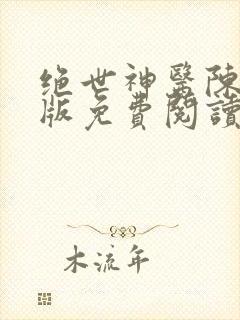 绝世神醫陳
版免費閱讀
木流年